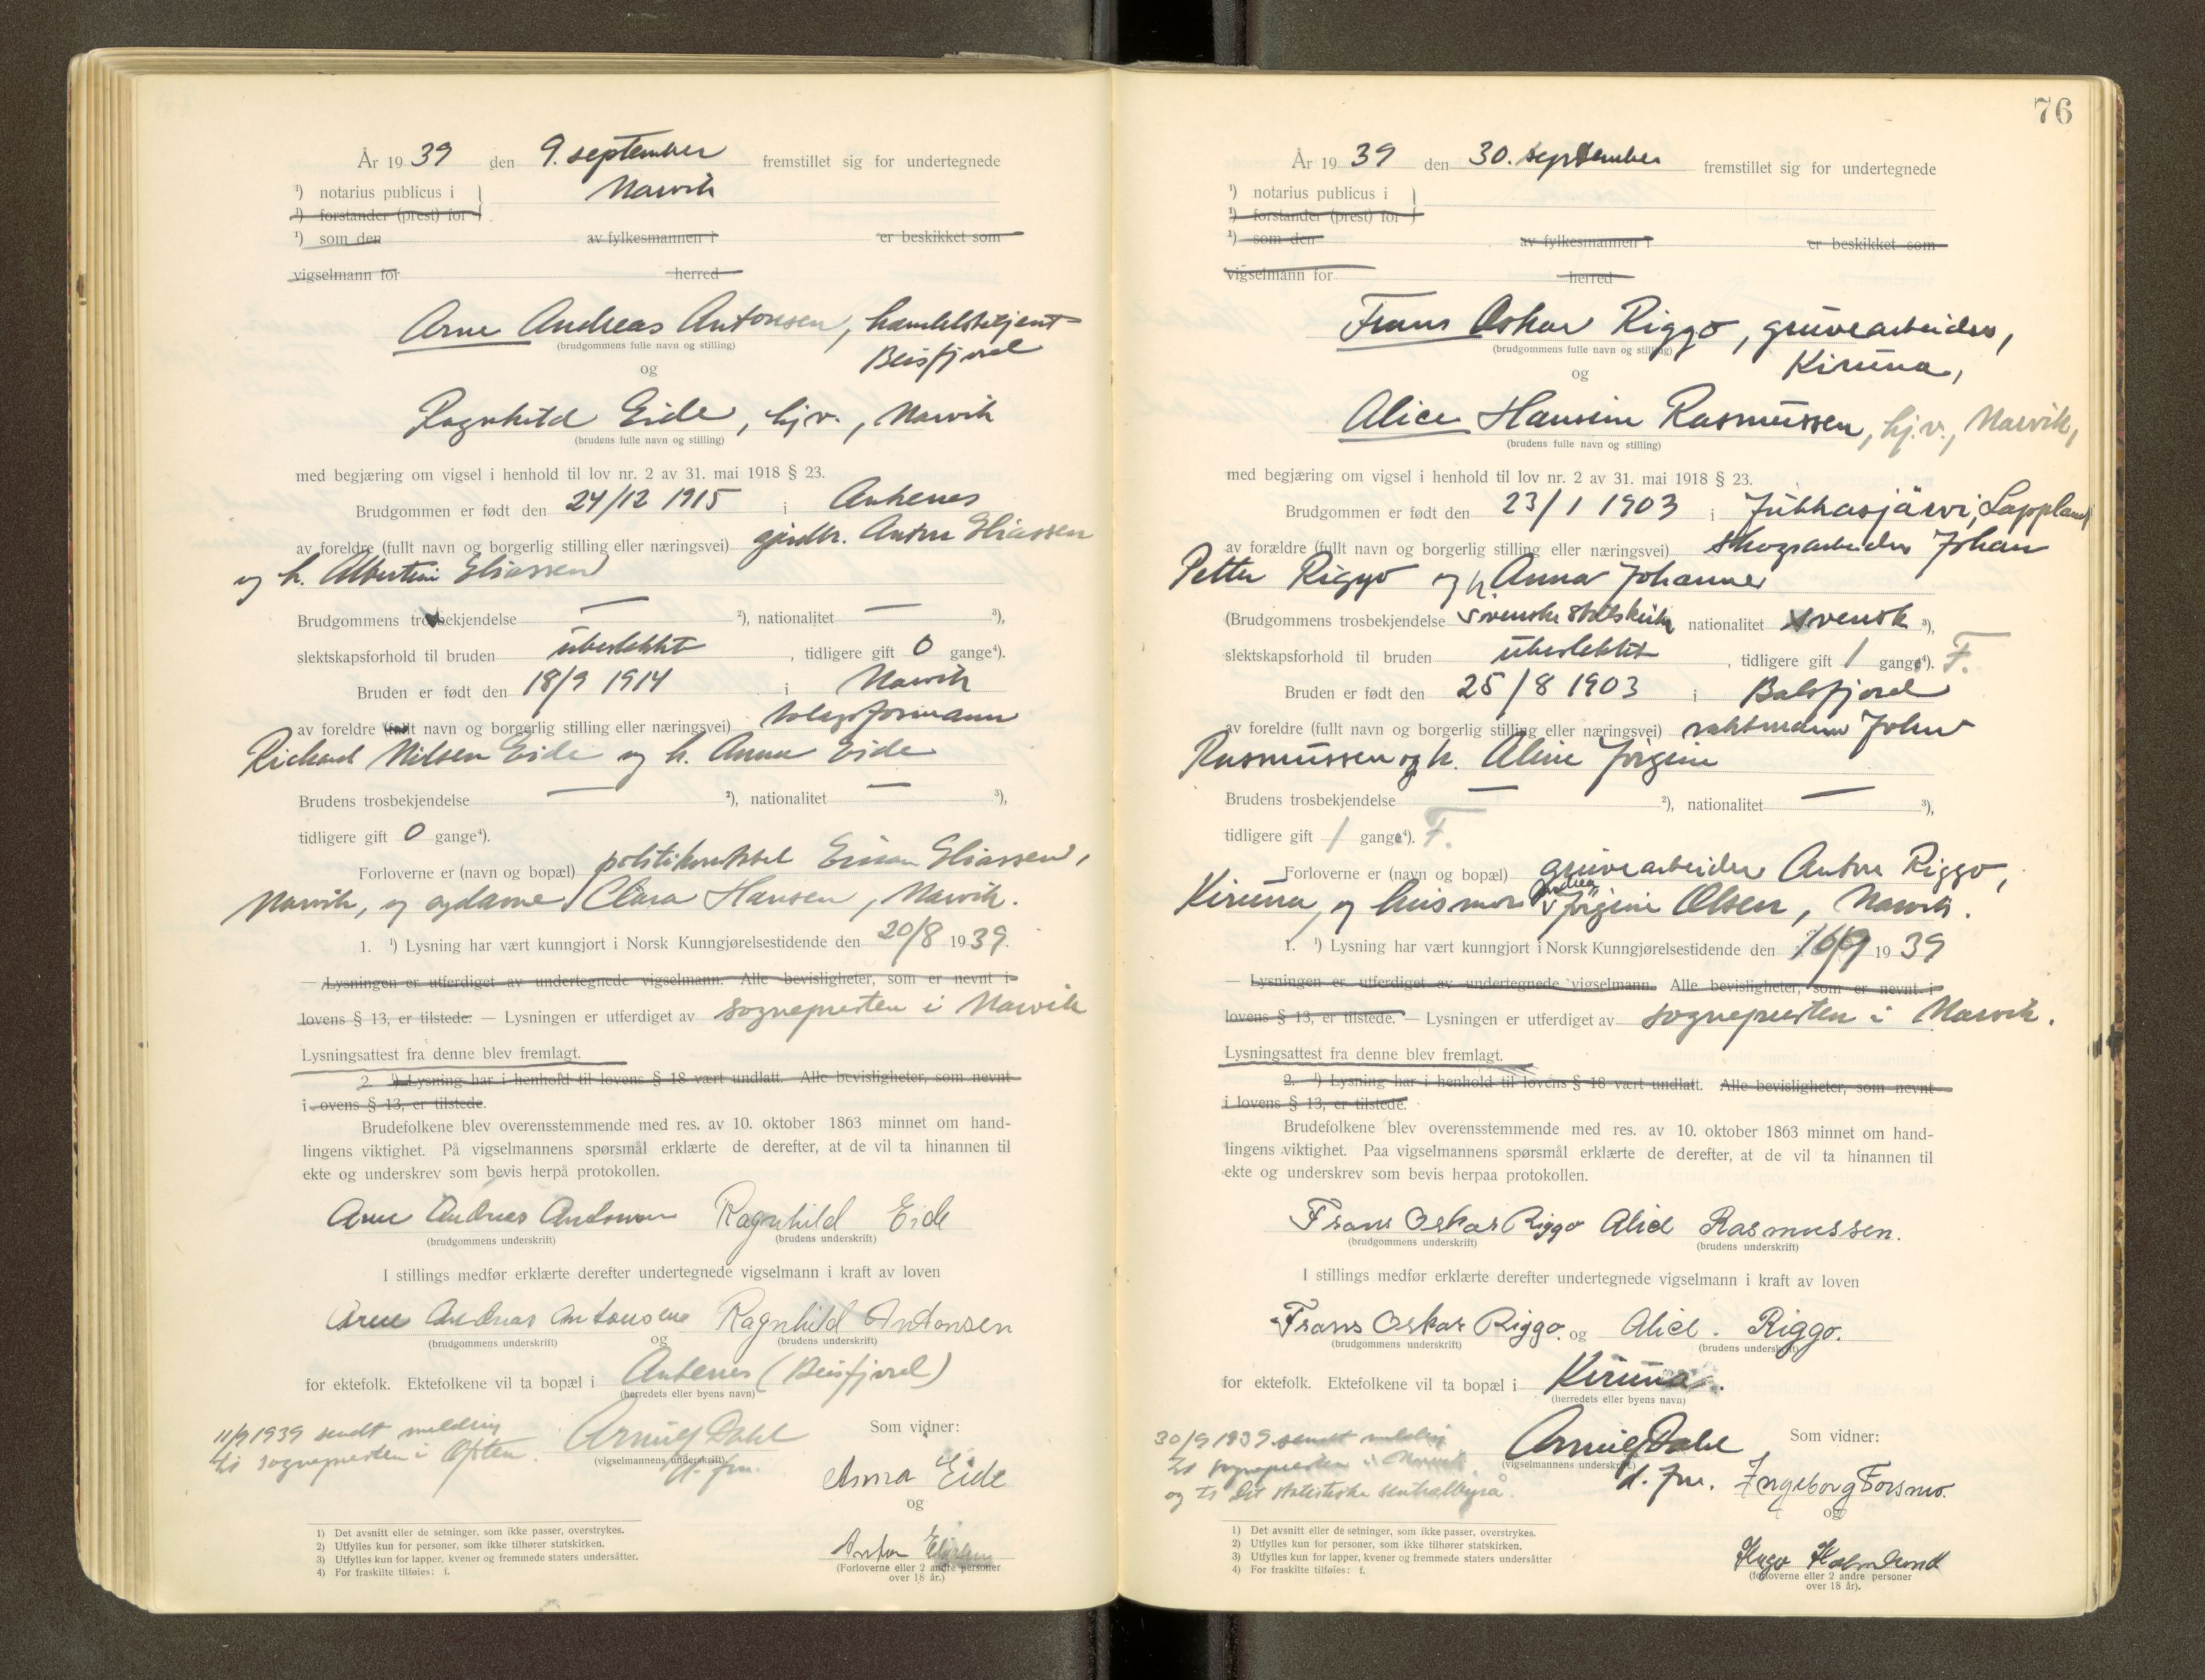 År 1939 den 9. september fremstillet sig for undertegnede
¹) notarius publicus i Narvik
¹) forstander (prest) for
¹) som den av fylkesmannen i er beskikket som
vigselmann for herred
Arne Andreas Antonsen, handelsbetjent
(brudgommens fulle navn og stilling)
Beisfjord
og
Ragnhild Eide, hj.v., Narvik
(brudens fulle navn og stilling)
med begjæring om vigsel i henhold til lov nr. 2 av 31. mai 1918 § 23.
Brudgommen er født den 24/12 1915 i Ankenes
av foreldre (fullt navn og borgerlig stilling eller næringsvei) gårdbr. Anton Eliassen
og h. Albertine Eliassen
Brudgommens trosbekjendelse — ²), nationalitet — ³),
slektskapsforhold til bruden ubeslektet, tidligere gift 0 gange⁴).
Bruden er født den 18/9 1914 i Narvik
av foreldre (fullt navn og borgerlig stilling eller næringsvei) formann
Richard Nilsen Eide og h. Anna Eide
Brudens trosbekjendelse — ²), nationalitet — ³),
tidligere gift 0 gange⁴).
Forloverne er (navn og bopæl) politikonstbel Einan Eliassen,
Narvik, og Clara Hansen, Narvik.
1. ¹) Lysning har vært kunngjort i Norsk Kunngjørelsestidende den 20/8 1939.
— Lysningen er utferdiget av undertegnede vigselmann. Alle bevisligheter, som er nevnt i
lovens § 13, er tilstede. — Lysningen er utferdiget av sognepresten i Narvik
Lysningsattest fra denne blev fremlagt.
2. ¹) Lysning har i henhold til lovens § 18 vært undlatt. Alle bevisligheter, som nevnt
i lovens § 13, er tilstede.
Brudefolkene blev overensstemmende med res. av 10. oktober 1863 minnet om hand-
lingens viktighet. På vigselmannens spørsmål erklærte de derefter, at de vil ta hinannen til
ekte og underskrev som bevis herpå protokollen.
Arne Andreas Antonsen Ragnhild Eide
(brudgommens underskrift) (brudens underskrift)
I stillings medfør erklærte derefter undertegnede vigselmann i kraft av loven
Arne Andreas Antonsen Ragnhild Antonsen
(brudgommens underskrift) og (brudens underskrift)
for ektefolk. Ektefolkene vil ta bopæl i Ankenes (Beisfjord)
(herredets eller byens navn)
11/9 1939 sendt melding
til sognepresten i Ofoten.
Arnulf Dahl
(vigselmannens underskrift)
d. fm.
Som vidner:
Anna Eide
og
Anton Eliassen
(Forloverne eller 2 andre personer
over 18 år.)
1) Det avsnitt eller de setninger, som ikke passer, overstrykes.
2) Utfylles kun for personer, som ikke tilhører statskirken.
3) Utfylles kun for lapper, kvener og fremmede staters undersåtter.
4) For fraskilte tilføies: f.
76
År 1939 den 30. september fremstillet sig for undertegnede
¹) notarius publicus i
¹) forstander (prest) for
¹) som den av fylkesmannen i er beskikket som
vigselmann for herred
Frans Oskar Riggo, gruvearbeider,
(brudgommens fulle navn og stilling)
Kiruna,
og
Alice Hansine Rasmussen, hj.v., Narvik,
(brudens fulle navn og stilling)
med begjæring om vigsel i henhold til lov nr. 2 av 31. mai 1918 § 23.
Brudgommen er født den 23/1 1903 i Jukkasjärvi, Lappland
av forældre (fullt navn og borgerlig stilling eller næringsvei) skogsarbeider Johan
Petter Riggo og h. Anna Johanna
(Brudgommens trosbekjendelse svenske statskirke nationalitet svensk ³),
slektskapsforhold til bruden ubeslektet, tidligere gift 1 gang⁴). F.
Bruden er født den 25/8 1903 i Balsfjord
av foreldre (fullt navn og borgerlig stilling eller næringsvei) vaktmann Johan
Rasmussen og h. Aline Jørgine
Brudens trosbekjendelse — ²), nationalitet — ³),
tidligere gift 1 gang⁴). F.
Forloverne er (navn og bopæl) gruvearbeider Anton Riggo,
Kiruna, og husmor Andrea Jørgine Olsen, Narvik.
1. ¹) Lysning har vært kunngjort i Norsk Kunngjørelsestidende den 16/9 1939
— Lysningen er utferdiget av undertegnede vigselmann. Alle bevisligheter, som er nevnt i
lovens § 13, er tilstede. — Lysningen er utferdiget av sognepresten i Narvik.
Lysningsattest fra denne blev fremlagt.
2. ¹) Lysning har i henhold til lovens § 18 vært undlatt. Alle bevisligheter, som nevnt
i lovens § 13, er tilstede.
Brudefolkene blev overensstemmende med res. av 10. oktober 1863 minnet om hand-
lingens viktighet. Paa vigselmannens spørsmål erklærte de derefter, at de vil ta hinannen til
ekte og underskrev som bevis herpaa protokollen.
Frans Oskar Riggo Alice Rasmussen.
(brudgommens underskrift) (brudens underskrift)
I stillings medfør erklærte derefter undertegnede vigselmann i kraft av loven
Frans Oskar Riggo. og Alice. Riggo.
(brudgommens underskrift) (brudens underskrift)
for ektefolk. Ektefolkene vil ta bopæl i Kiruna.
(herredets eller byens navn)
30/9 1939 sendt melding
til sognepresten i Narvik
og til Det statistiske sentralbyrå.
Arnulf Dahl,
(vigselmannens underskrift)
d. fm.
Som vidner:
Ingeborg Forsmo.
og
Hugo Holmlund
(forloverne eller 2 andre personer
over 18 år).
1) Det avsnitt eller de setninger, som ikke passer, overstrykes.
2) Utfylles kun for personer, som ikke tilhører statskirken.
3) Utfylles kun for lapper, kvener og fremmede staters undersåtter
4) For fraskilte tilføies: f.